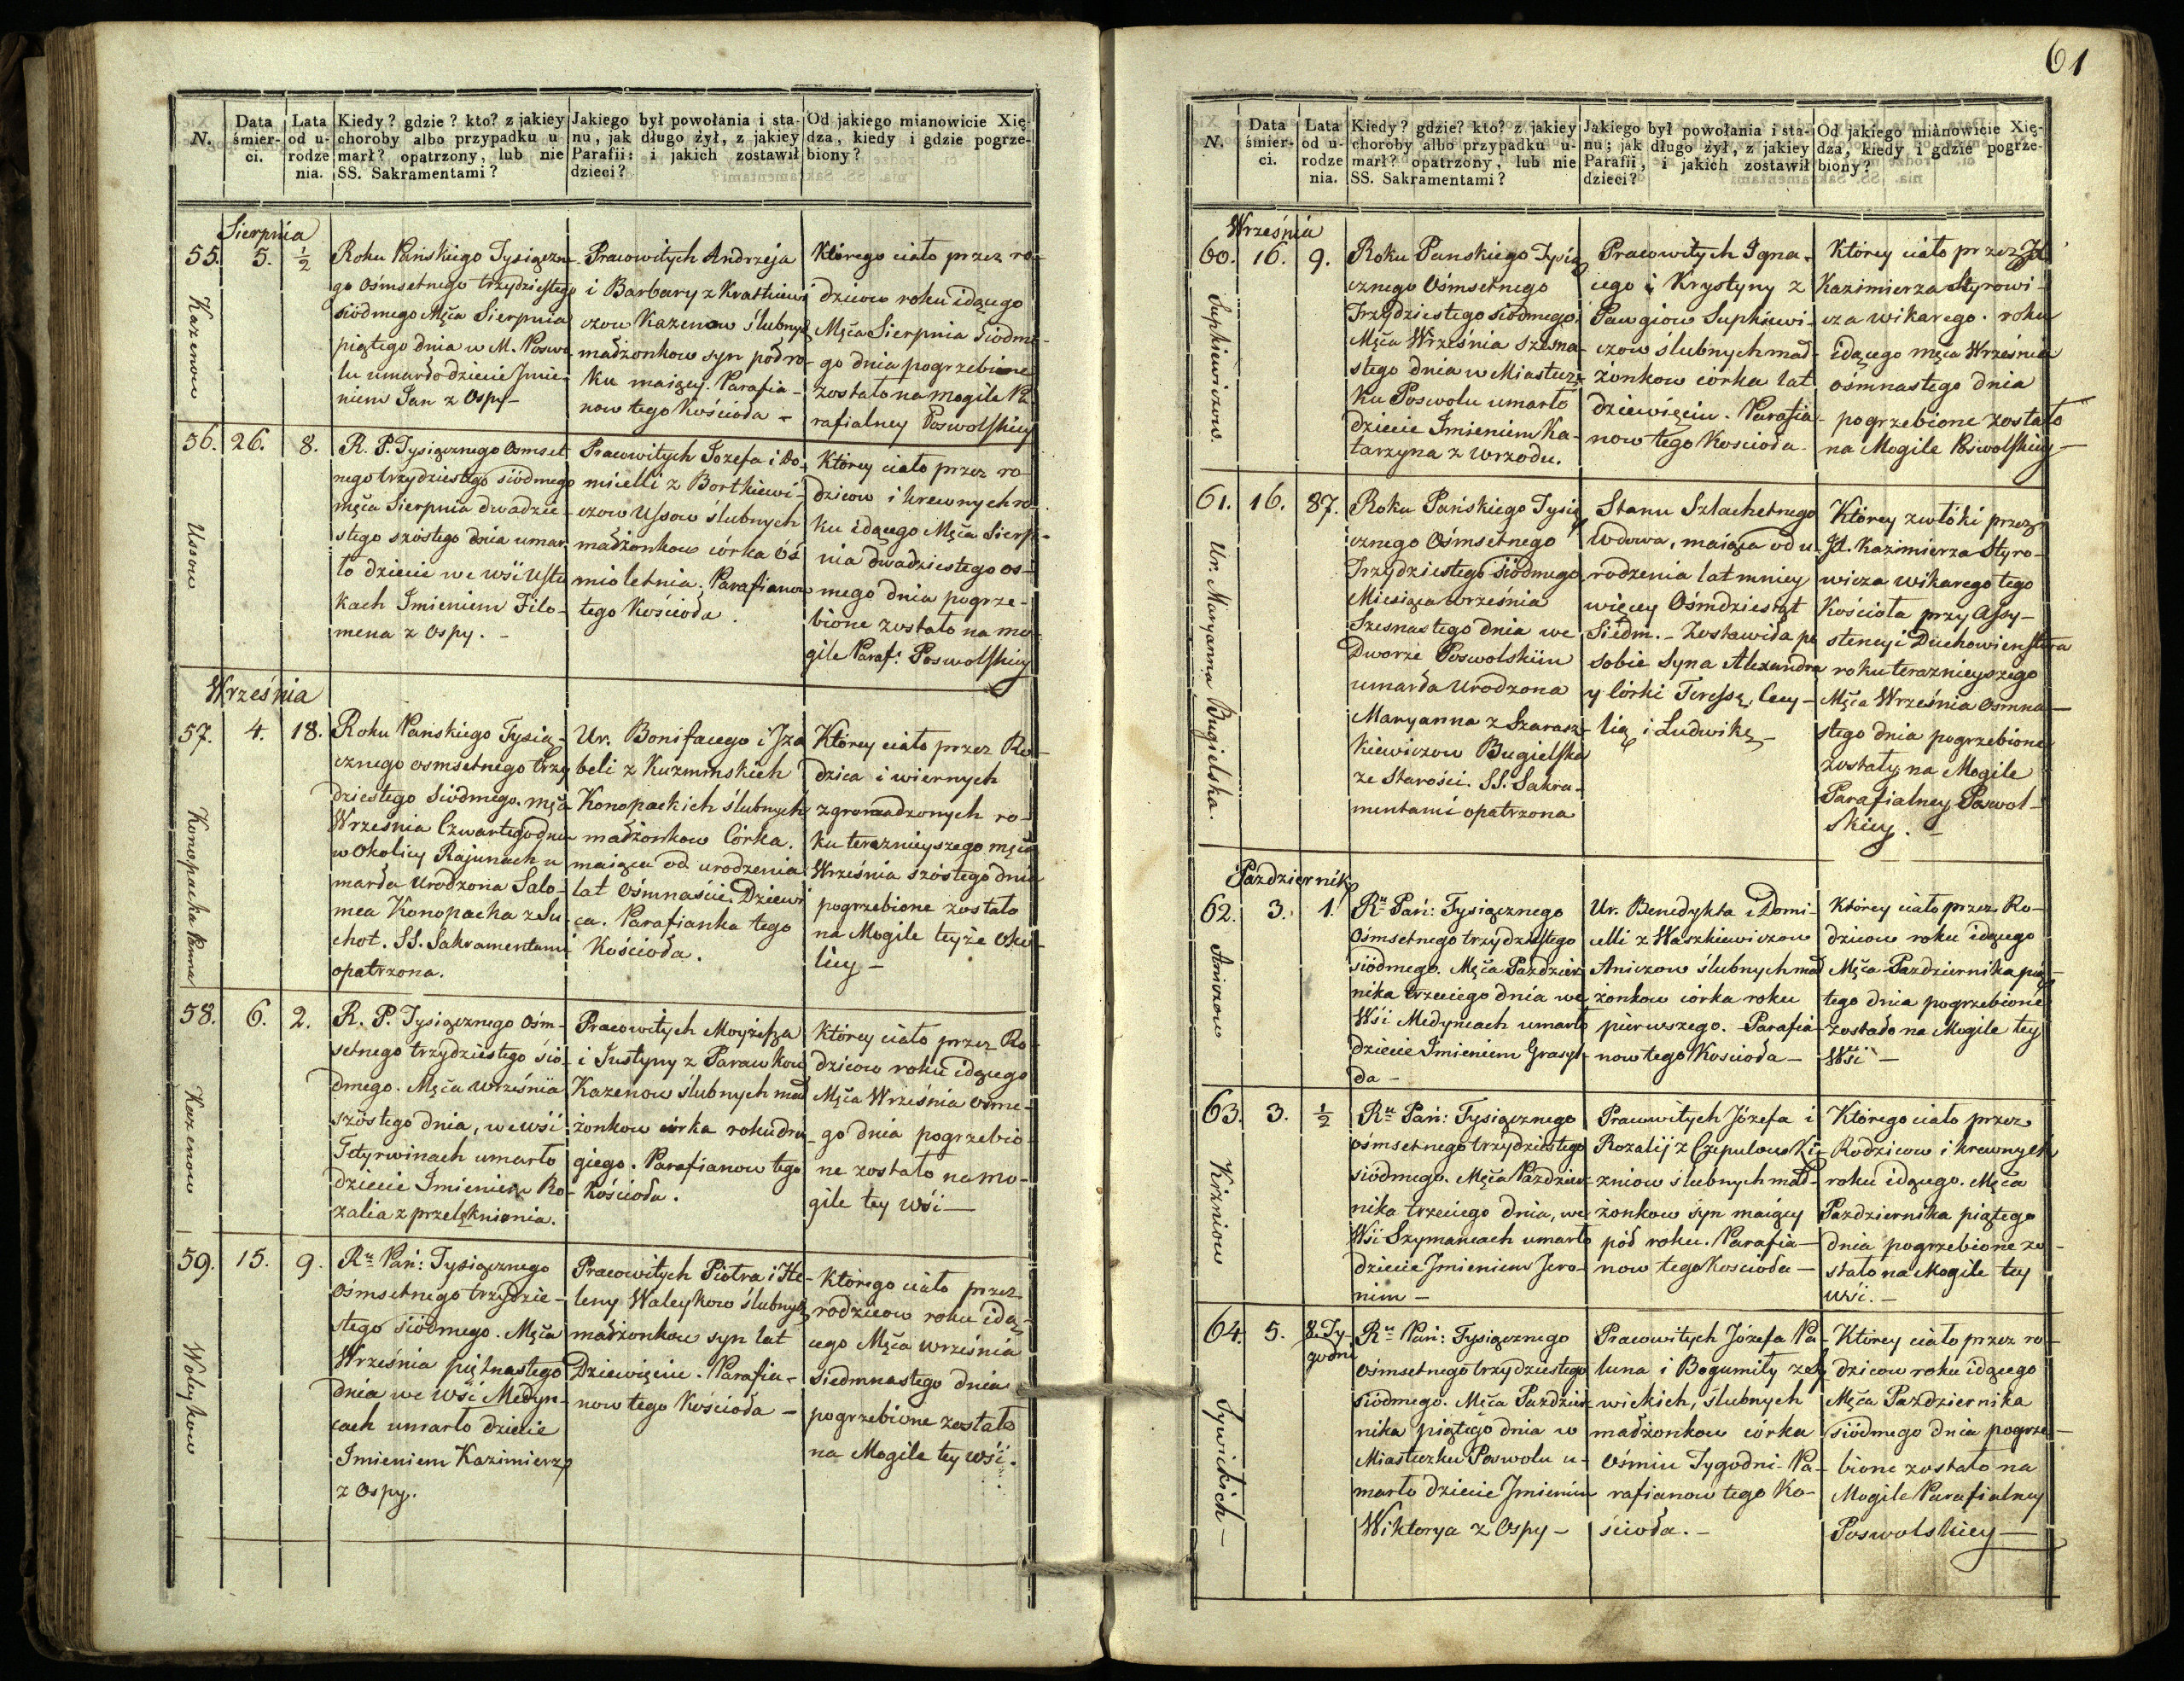 61
N.
Data śmier- ci.
Lata od u- rodze nia.
Kiedy? gdzie? kto? z jakiey
choroby albo przypadku u-
marł? opatrzony, lub nie
SS. Sakramentami?
Jakiego był powołania i sta-
nu, jak długo żył, z jakiey
Parafii: i jakich zostawił
dzieci?
Od jakiego mianowicie Xię-
dza, kiedy i gdzie pogrze-
biony?
Sierpnia
55. 5. ½
Kazenow
Roku Pańskiego Tysiączne-
go Ośmsetnego trzydziestego
siódmego Męca Sierpnia
piątego dnia w M. Poswo-
lu umarło dziecie Jmie-
niem Jan z Ospy-
Pracowitych Andrzeja
i Barbary z Krathiewi
czow Kazenow ślubnych
małżonkow syn pół ro-
ku maiący. Parafia-
now tego Kościoła -
Którego ciało przez ro-
dzicow roku idącego
Męca Sierpnia siódme-
go dnia pogrzebione
zostało na mogile Pa-
rafialney Poswolskiey
56. 26. 8.
Ussow
R. P. Tysiącznego Osmset
nego trzydziestego siódmego
męca Sierpnia dwadzie-
stego szóstego dnia umar
ło dziecie we wsi Uste
kach Imieniem Filo-
mena z Ospy. -
Pracowitych Jozefa i Do-
micelli z Bortkiewi-
czow Ussow ślubnych
małżonkow córka óś
mioletnia. Parafianow
tego Kościoła.
Którey ciało przez ro-
dzicow i krewnych ro-
ku idącego Męca Sierp-
nia dwadziestego os-
mego dnia pogrze-
bione zostało na mo-
gile Paraf: Poswolskiey
Września
57. 4. 18.
Konopacka Panna
Roku Pańskiego Tysią-
cznego osmsetnego trzy
dziestego siódmego. męca
Września Czwartego dnia
w Okolicy Rajunach u
marła Urodzona Salo-
mea Konopacka z Su-
chot. SS. Sakramentami
opatrzona.
Ur. Bonifacego i Jza
beli z Kuzminskich
Konopackich ślubnych
małżonkow Córka.
maiąca od urodzenia
lat Ośmnaście. Dziewi
ca. Parafianka tego
Kościoła.
Którey ciało przez Ro-
dzica i wiernych
zgromadzonych ro-
ku teraznieyszego męca
Września szóstego dnia
pogrzebione zostało
na Mogile teyże Oko-
licy -
58. 6. 2.
Kazenow
R. P. Tysiącznego Ośm-
setnego trzydziestego sió-
dmego. Męca Września
szóstego dnia, we wsi
Tetyrwinach umarło
dziecie Imieniem Ro-
zalia z przelęknienia.
Pracowitych Moyżesza
i Justyny z Parawkow
Kazenow ślubnych mał
żonkow córka roku dru-
giego. Parafianow tego
Kościoła.
Którey ciało przez Ro-
dzicow roku idącego
Męca Września osme-
go dnia pogrzebio-
ne zostało na mo-
gile tey wsi —
59. 15. 9.
Waleykow
Ru Pań: Tysiącznego
Ośmsetnego trzydzie-
stego siódmego. Męca
Września piętnastego
dnia we wsi Medyn-
cach umarło dziecie
Imieniem Kazimierz
z Ospy.
Pracowitych Piotra i He-
leny Waleykow ślubnych
małżonkow syn lat
Dziewięciu. Parafia-
now tego Kościoła -
Którego ciało przez
rodzicow roku idą-
cego Męca września
siedmnastego dnia
pogrzebione zostało
na Mogile tey wsi.
N.
Data śmier- ci.
Lata od u- rodze nia.
Kiedy? gdzie? kto? z jakiey
choroby albo przypadku u-
marł? opatrzony, lub nie
SS. Sakramentami?
Jakiego był powołania i sta-
nu; jak długo żył, z jakiey
Parafii, i jakich zostawił
dzieci?
Od jakiego mianowicie Xię-
dza, kiedy i gdzie pogrze-
biony?
Września
60. 16. 9.
Supkiewiczow.
Roku Panskiego Tysią
cznego Ośmsetnego
Trzydziestego siódmego.
Męca Września szesna-
stego dnia w Miastecz-
ku Poswolu umarło
dziecie Imieniem Ka-
tarzyna z wrzodu.
Pracowitych Igna-
cego i Krystyny z
Pawgiow Supkiewi-
czow ślubnych mał-
żonkow córka lat
dziewięciu. Parafia-
now tego Kosciola.
Którey ciało przez Jd.
Kazimierza Styrowi-
cza wikarego. roku
idącego męca Września
ośmnastego dnia
pogrzebione zostało
na Mogile Poswolskiey -
61. 16. 87.
Ur. Maryanna Bugielska.
Roku Pańskiego Tysią
cznego Ośmsetnego
Trzydziestego siódmego
Miesiąca września
Szesnastego dnia we
Dworze Poswolskim
umarła Urodzona
Maryanna z Szarasz-
kiewiczow Bugielska
ze Starości. SS. Sakra-
mentami opatrzona
Stanu Szlachetnego
Wdowa, maiąca od u-
rodzenia lat mniey
więcey Ośmdziesiąt
Siedm. - Zostawiła po
sobie Syna Alexandra
y Córki Teressę, Cecy-
lią i Ludwikę -
Którey zwłóki przez
Jd. Kazimierza Styro-
wicza wikarego tego
Kościoła przy Assy-
stencyi Duchowienstwa
roku teraznieyszego
Męca Września osmna-
stego dnia pogrzebione
zostały na Mogile
Parafialney Poswol-
skiey. -
Październik
62. 3. 1.
Aniczow
Ru Pań: Tysiącznego
Ośmsetnego trzydziestego
siódmego. Męca Paździer
nika trzeciego dnia we
Wsi Medyncach umarło
dziecie Imieniem Grasyl-
da -
Ur. Benedykta i Domi-
celli z Waszkiewiczow
Aniczow ślubnych mał
żonkow córka roku
pierwszego. Parafia-
now tego Kosciola -
Którey ciało przez Ro-
dzicow roku idącego
Męca Pazdziernika pią-
tego dnia pogrzebione
zostało na Mogile tey
Wsi -
63. 3. ½
Kirzniow
Ru Pań: Tysiącznego
ośmsetnego trzydziestego
siódmego. Męca Paździer
nika trzeciego dnia, we
Wsi Szymancach umarło
dziecie Jmieniem Jero-
nim -
Pracowitych Józefa i
Rozalij z Czepulow Kir
zniow ślubnych mał-
żonkow syn maiący
pół roku. Parafia-
now tego Kosciola -
Którego ciało przez
Rodzicow i krewnych
roku idącego. Męca
Pazdziernika piątego
dnia pogrzebione zo-
stało na Mogile tey
wsi. -
64. 5. 8. Ty-
godni
Zywickich -
Ru Pań: Tysiącznego
ośmsetnego trzydziestego
siódmego. Męca Paździer
nika piątego dnia w
Miasteczku Poswolu u-
marło dziecie Jmieniem
Wiktorya z Ospy -
Pracowitych Józefa Pa-
luna i Bogumiły
wickich, ślubnych
małżonkow córka
Ośmiu Tygodni. Pa-
rafianow tego Ko-
ścioła. -
Którey ciało przez ro-
dzicow roku idącego
Męca Pazdziernika
siódmego dnia pogrze-
bione zostało na
Mogile Parafialney
Poswolskiey —